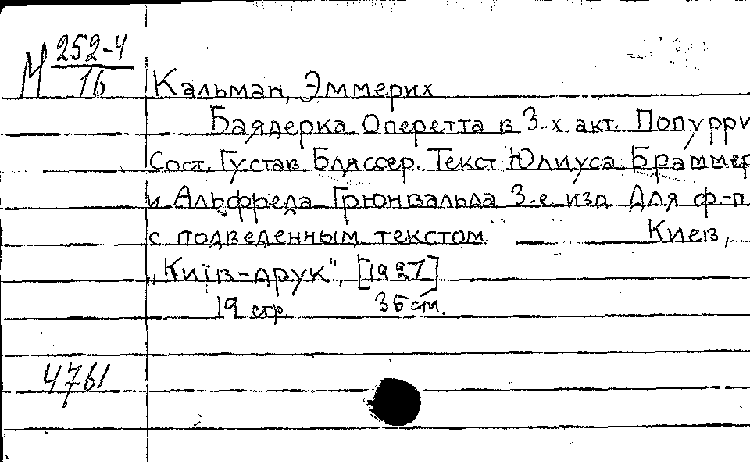 М 252-4
16
Кальман, Эммерих
Баядерка. Оперетта в 3-х акт. Попурри
Сост. Густав Бляссер. Текст Юлиуса Браммер
и Альфреда Грюнвальда 3-е изд. Для ф-п
с подведенным текстом Киев,
„Київ-друк", [1927]
19 стр. 36 стм.
4761